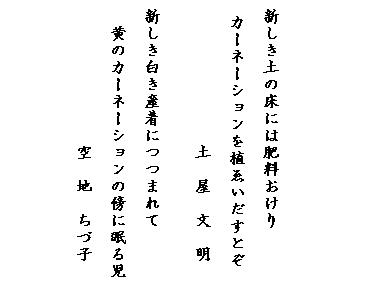 新しき土の床には肥料おけり
カーネーションを植ゑいだすとぞ
土屋文明
新しき白き産着につつまれて
黄のカーネーションの傍に眠る児
空地ちづ子